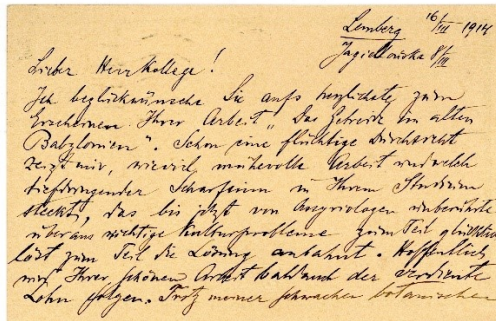 Lemberg 16/III 1914
Jagiellońska 8/III
Lieber Herr Kollege!
Ich beglückwünsche Sie aufs herzlichste zum
Erscheinen Ihrer Arbeit „Das Getreide im alten
Babylonien“. Schon eine flüchtige Durchsicht
zeigt mir, wieviel mühevolle Arbeit und welch
tiefdringender Scharfsinn in Ihrem Studium
steckt, das bis jetzt von Assyriologen unberührte
überaus wichtige Kulturprobleme zum Teil glücklich
löst zum Teil die Lösung anbahnt. Hoffentlich
wird Ihrer schönen Arbeit bald auch der verdiente
Lohn folgen. Trotz meiner schwachen botanischen